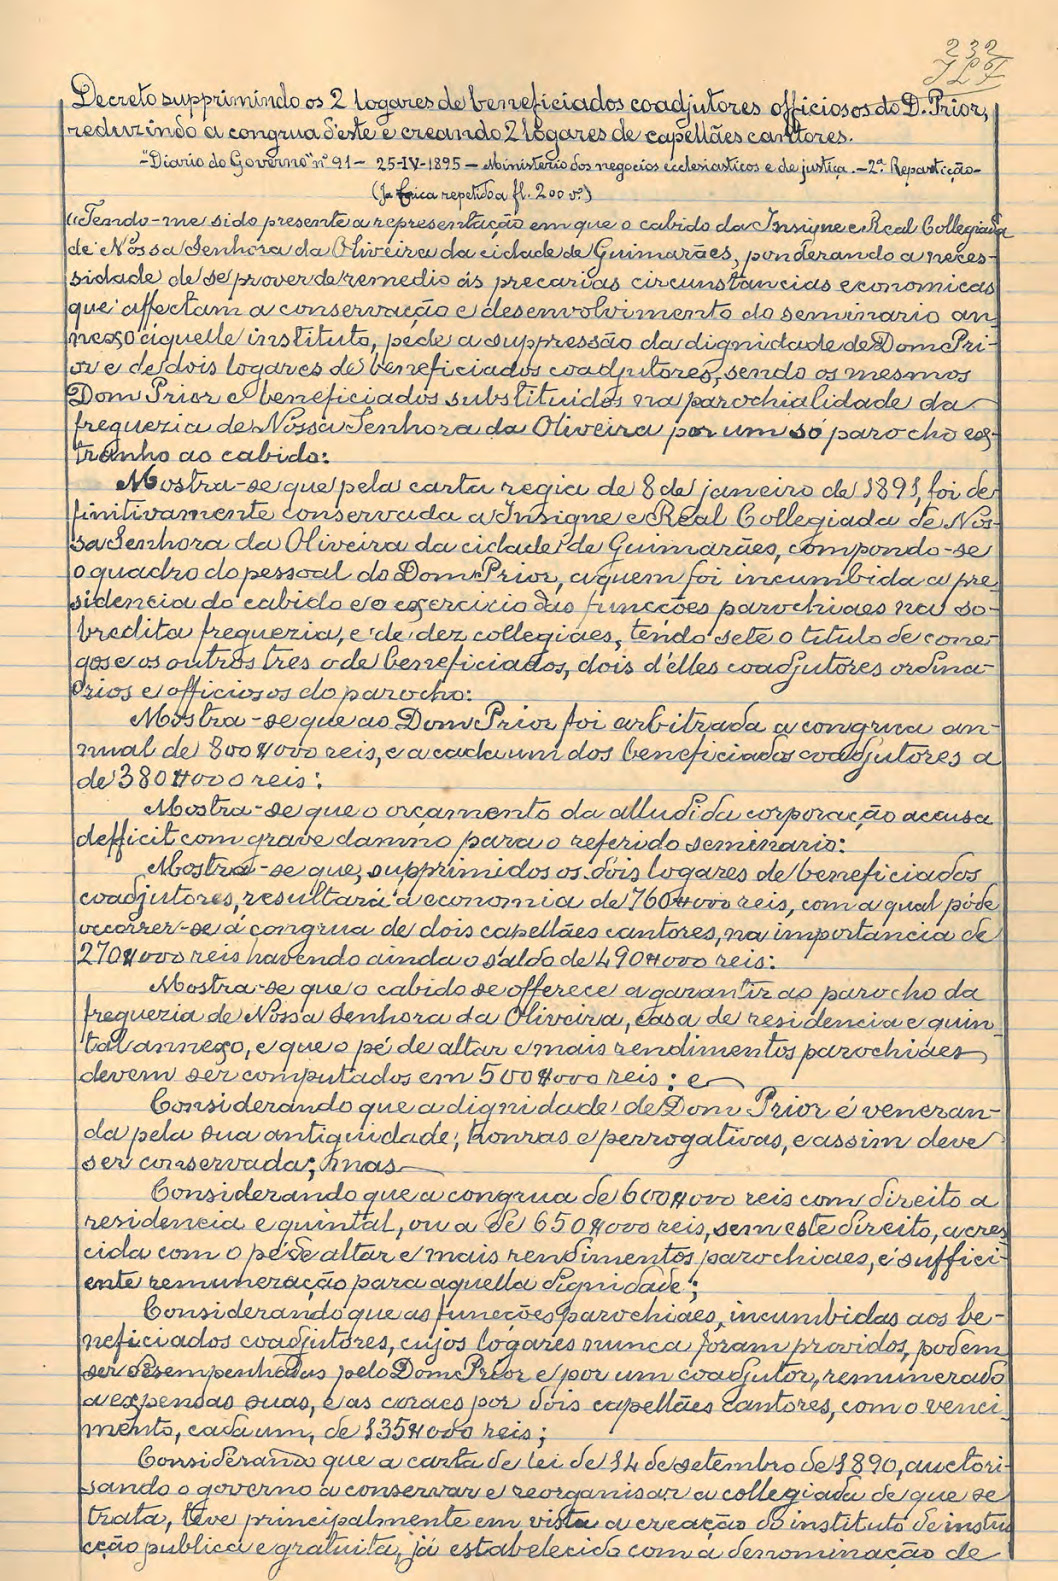 232
Decreto supprimindo os 2 logares de beneficiados coadjutores officiosos do D. Prior,
reduzindo a congrua d'este e creando 2 logares de capellães cantores.
"Diario do Governo" nº 91 - 25-IV-1895 - Ministerio dos negocios ecclesiasticos e de justiça. - 2ª Repartição -
(Ja fica repetido a fl. 200 vº)
"Tendo-me sido presente a representação em que o cabido da Insigne e Real Collegiada
de Nossa Senhora da Oliveira da cidade de Guimarães, ponderando a neces-
sidade de se prover de remedio ás precarias circunstancias economicas
que affectam a conservação e desenvolvimento do seminario an-
nexo áquelle instituto, pede a suppressão da dignidade de Dom Pri-
or e de dois logares de beneficiados coadjutores, sendo os mesmos
Dom Prior e beneficiados substituidos na parochialidade da
freguezia de Nossa Senhora da Oliveira por um só parocho ex-
tranho ao cabido:
Mostra-se que pela carta regia de 8 de janeiro de 1891, foi de
finitivamente conservada a Insigne e Real Collegiada de Nos-
sa Senhora da Oliveira da cidade de Guimarães, compondo-se
o quadro do pessoal do Dom Prior, a quem foi incumbida a pre
sidencia do cabido e o exercicio das funcções parochiaes na so-
bredita freguezia, e de dez collegiaes, tendo sete o titulo de cone-
gos e os outros tres o de beneficiados, dois d'elles coadjutores ordina-
rios e officiosos do parocho:
Mostra-se que ao Dom Prior foi arbitrada a congrua an-
nual de 800$000 reis, e a cada um dos beneficiados coadjutores a
de 380$000 reis:
Mostra-se que o orçamento da alludida corporação accusa
defficit com grave damno para o referido seminario:
Mostra-se que, supprimidos os dois logares de beneficiados
coadjutores, resultará a economia de 760$000 reis, com a qual póde
occorrer-se á congrua de dois capellães cantores, na importancia de
270$000 reis havendo ainda o saldo de 490$000 reis:
Mostra-se que o cabido se offerece a garantir ao parocho da
freguezia de Nossa Senhora da Oliveira, casa de residencia e quin-
tal annexo, e que o pé de altar e mais rendimentos parochiaes
devem ser computados em 500$000 reis: e
Considerando que a dignidade de Dom Prior é veneran-
da pela sua antiguidade, honras e perrogativas, e assim deve
ser conservada; mas
Considerando que a congrua de 600$000 reis com direito a
residencia e quintal, ou a de 650$000 reis, sem este direito, acres
cida com o pé de altar e mais rendimentos parochiaes, é suffici-
ente remuneração para aquella dignidade;
Considerando que as funcções parochiaes, incumbidas aos be-
neficiados coadjutores, cujos logares nunca foram providos, podem
ser desempenhadas pelo Dom Prior e por um coadjutor, remunerado
a expensas suas, e as coraes por dois capellães cantores, com o venci-
mento, cada um, de 135$000 reis;
Considerando que a carta de lei de 14 de setembro de 1890, auctori-
sando o governo a conservar e reorganisar a collegiada de que se
trata, teve principalmente em vista a creação do instituto de instru
cção publica e gratuita, já estabelecido com a denominação de